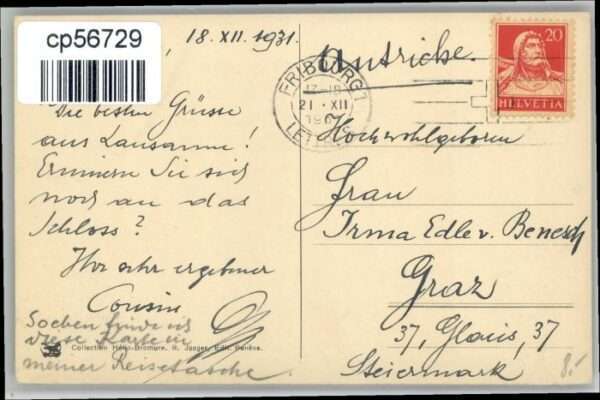 cp56729
, 18. XII. 1931.
Die besten Grüsse
aus Lausanne!
Erinnern Sie sich
noch an das
Schloss?
Ihr sehr ergebener
Cousin
Soeben finde ich
diese Karte in
meiner Reisetasche
Collection Hélio-Bromure, R. Jaeger, Edit. Genève.
Autriche.
FRIBOURG 1
21. XII
LETT
20
HELVETIA
Hochwohlgeboren
Frau
Irma Edle v. Benesch
Graz
37, Glacis, 37
Steiermark
8.-